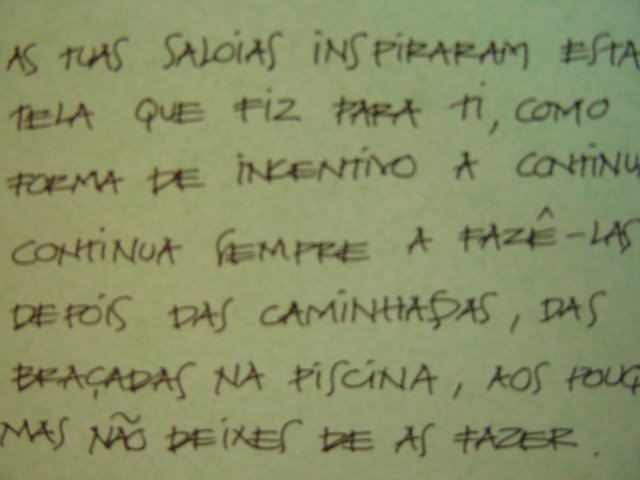 AS TUAS SALOIAS INSPIRARAM ESTA
TELA QUE FIZ PARA TI, COMO
FORMA DE INCENTIVO A CONTINU
CONTINUA SEMPRE A FAZÊ-LAS
DEPOIS DAS CAMINHADAS, DAS
BRAÇADAS NA PISCINA, AOS POUC
MAS NÃO DEIXES DE AS FAZER.